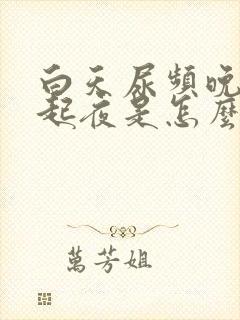 白天尿頻晚
起夜是怎麼
萬芳姐